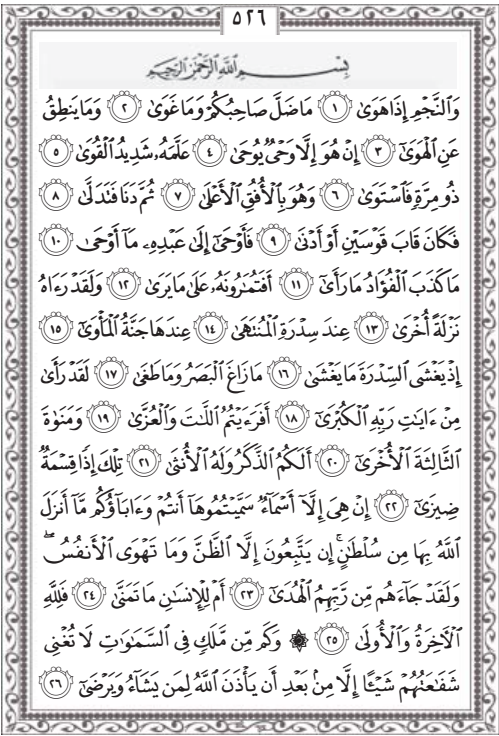 ٥٢٦
بِسْمِ اللَّهِ الرَّحْمَٰنِ الرَّحِيمِ
وَالنَّجْمِ إِذَا هَوَىٰ ١ مَا ضَلَّ صَاحِبُكُمْ وَمَا غَوَىٰ ٢ وَمَا يَنطِقُ
عَنِ الْهَوَىٰ ٣ إِنْ هُوَ إِلَّا وَحْيٌ يُوحَىٰ ٤ عَلَّمَهُ شَدِيدُ الْقُوَىٰ ٥
ذُو مِرَّةٍ فَاسْتَوَىٰ ٦ وَهُوَ بِالْأُفُقِ الْأَعْلَىٰ ٧ ثُمَّ دَنَا فَتَدَلَّىٰ ٨
فَكَانَ قَابَ قَوْسَيْنِ أَوْ أَدْنَىٰ ٩ فَأَوْحَىٰ إِلَىٰ عَبْدِهِ مَا أَوْحَىٰ ١٠
مَا كَذَبَ الْفُؤَادُ مَا رَأَىٰ ١١ أَفَتُمَارُونَهُ عَلَىٰ مَا يَرَىٰ ١٢ وَلَقَدْ رَءَاهُ
نَزْلَةً أُخْرَىٰ ١٣ عِندَ سِدْرَةِ الْمُنتَهَىٰ ١٤ عِندَهَا جَنَّةُ الْمَأْوَىٰ ١٥
إِذْ يَغْشَى السِّدْرَةَ مَا يَغْشَىٰ ١٦ مَا زَاغَ الْبَصَرُ وَمَا طَغَىٰ ١٧ لَقَدْ رَأَىٰ
مِنْ ءَايَٰتِ رَبِّهِ الْكُبْرَىٰ ١٨ أَفَرَءَيْتُمُ اللَّٰتَ وَالْعُزَّىٰ ١٩ وَمَنَوٰةَ
الثَّالِثَةَ الْأُخْرَىٰ ٢٠ أَلَكُمُ الذَّكَرُ وَلَهُ الْأُنثَىٰ ٢١ تِلْكَ إِذًا قِسْمَةٌ
ضِيزَىٰ ٢٢ إِنْ هِيَ إِلَّا أَسْمَاءٌ سَمَّيْتُمُوهَا أَنتُمْ وَءَابَاؤُكُم مَّا أَنزَلَ
اللَّهُ بِهَا مِن سُلْطَٰنٍ ۚ إِن يَتَّبِعُونَ إِلَّا الظَّنَّ وَمَا تَهْوَى الْأَنفُسُ ۖ
وَلَقَدْ جَاءَهُم مِّن رَّبِّهِمُ الْهُدَىٰ ٢٣ أَمْ لِلْإِنسَٰنِ مَا تَمَنَّىٰ ٢٤ فَلِلَّهِ
الْآخِرَةُ وَالْأُولَىٰ ٢٥ ۞ وَكَم مِّن مَّلَكٍ فِي السَّمَٰوَٰتِ لَا تُغْنِي
شَفَٰعَتُهُمْ شَيْـًٔا إِلَّا مِنۢ بَعْدِ أَن يَأْذَنَ اللَّهُ لِمَن يَشَاءُ وَيَرْضَىٰ ٢٦